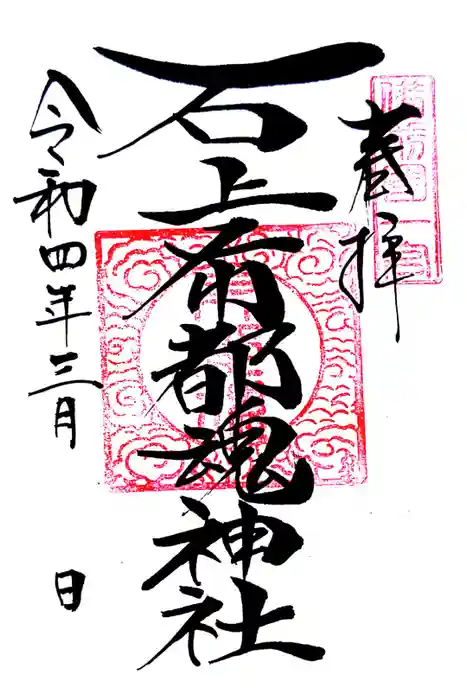 奉拝
石上布都魂神社
令和四年三月 日